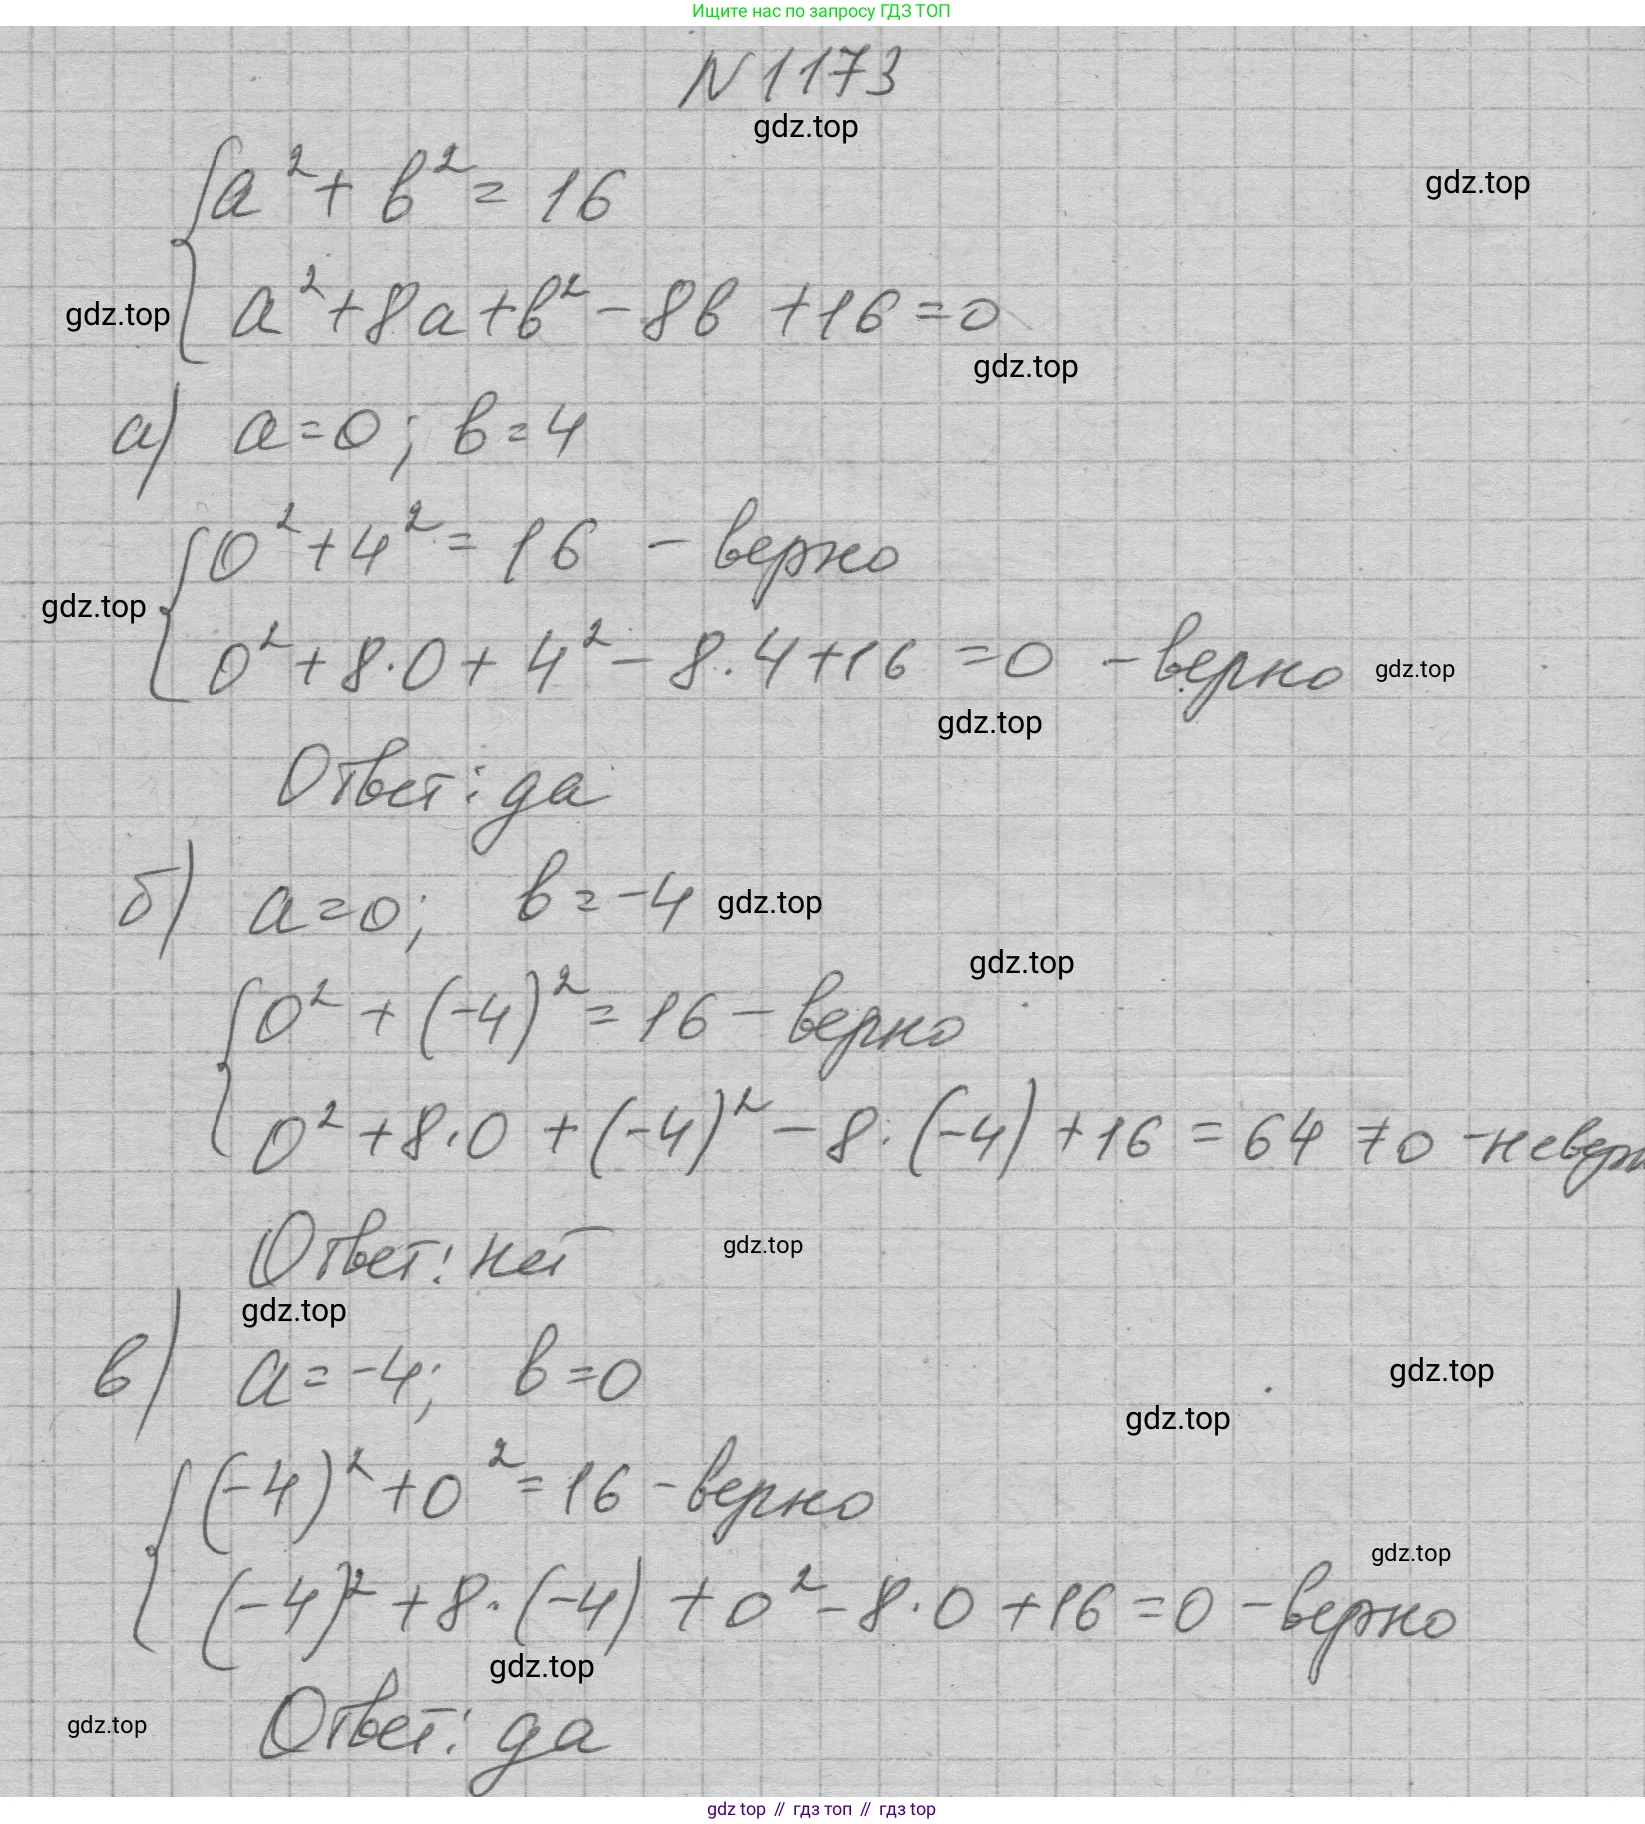 Ищите нас по запросу ГДЗ ТОП
N 1173
gdz.top
a² + b² = 16
gdz.top
gdz.top
a² + 8a + b² - 8b + 16 = 0
gdz.top
а) a = 0; b = 4
0² + 4² = 16 - верно
gdz.top
0² + 8·0 + 4² - 8·4 + 16 = 0 - верно
gdz.top
gdz.top
Ответ: да
б) a = 0; b = -4
gdz.top
gdz.top
0² + (-4)² = 16 - верно
0² + 8·0 + (-4)² - 8·(-4) + 16 = 64 ≠ 0 - неверн
Ответ: нет
gdz.top
gdz.top
в) a = -4; b = 0
gdz.top
gdz.top
(-4)² + 0² = 16 - верно
gdz.top
(-4)² + 8·(-4) + 0² - 8·0 + 16 = 0 - верно
gdz.top
gdz.top
Ответ: да
gdz top // гдз топ // гдз top